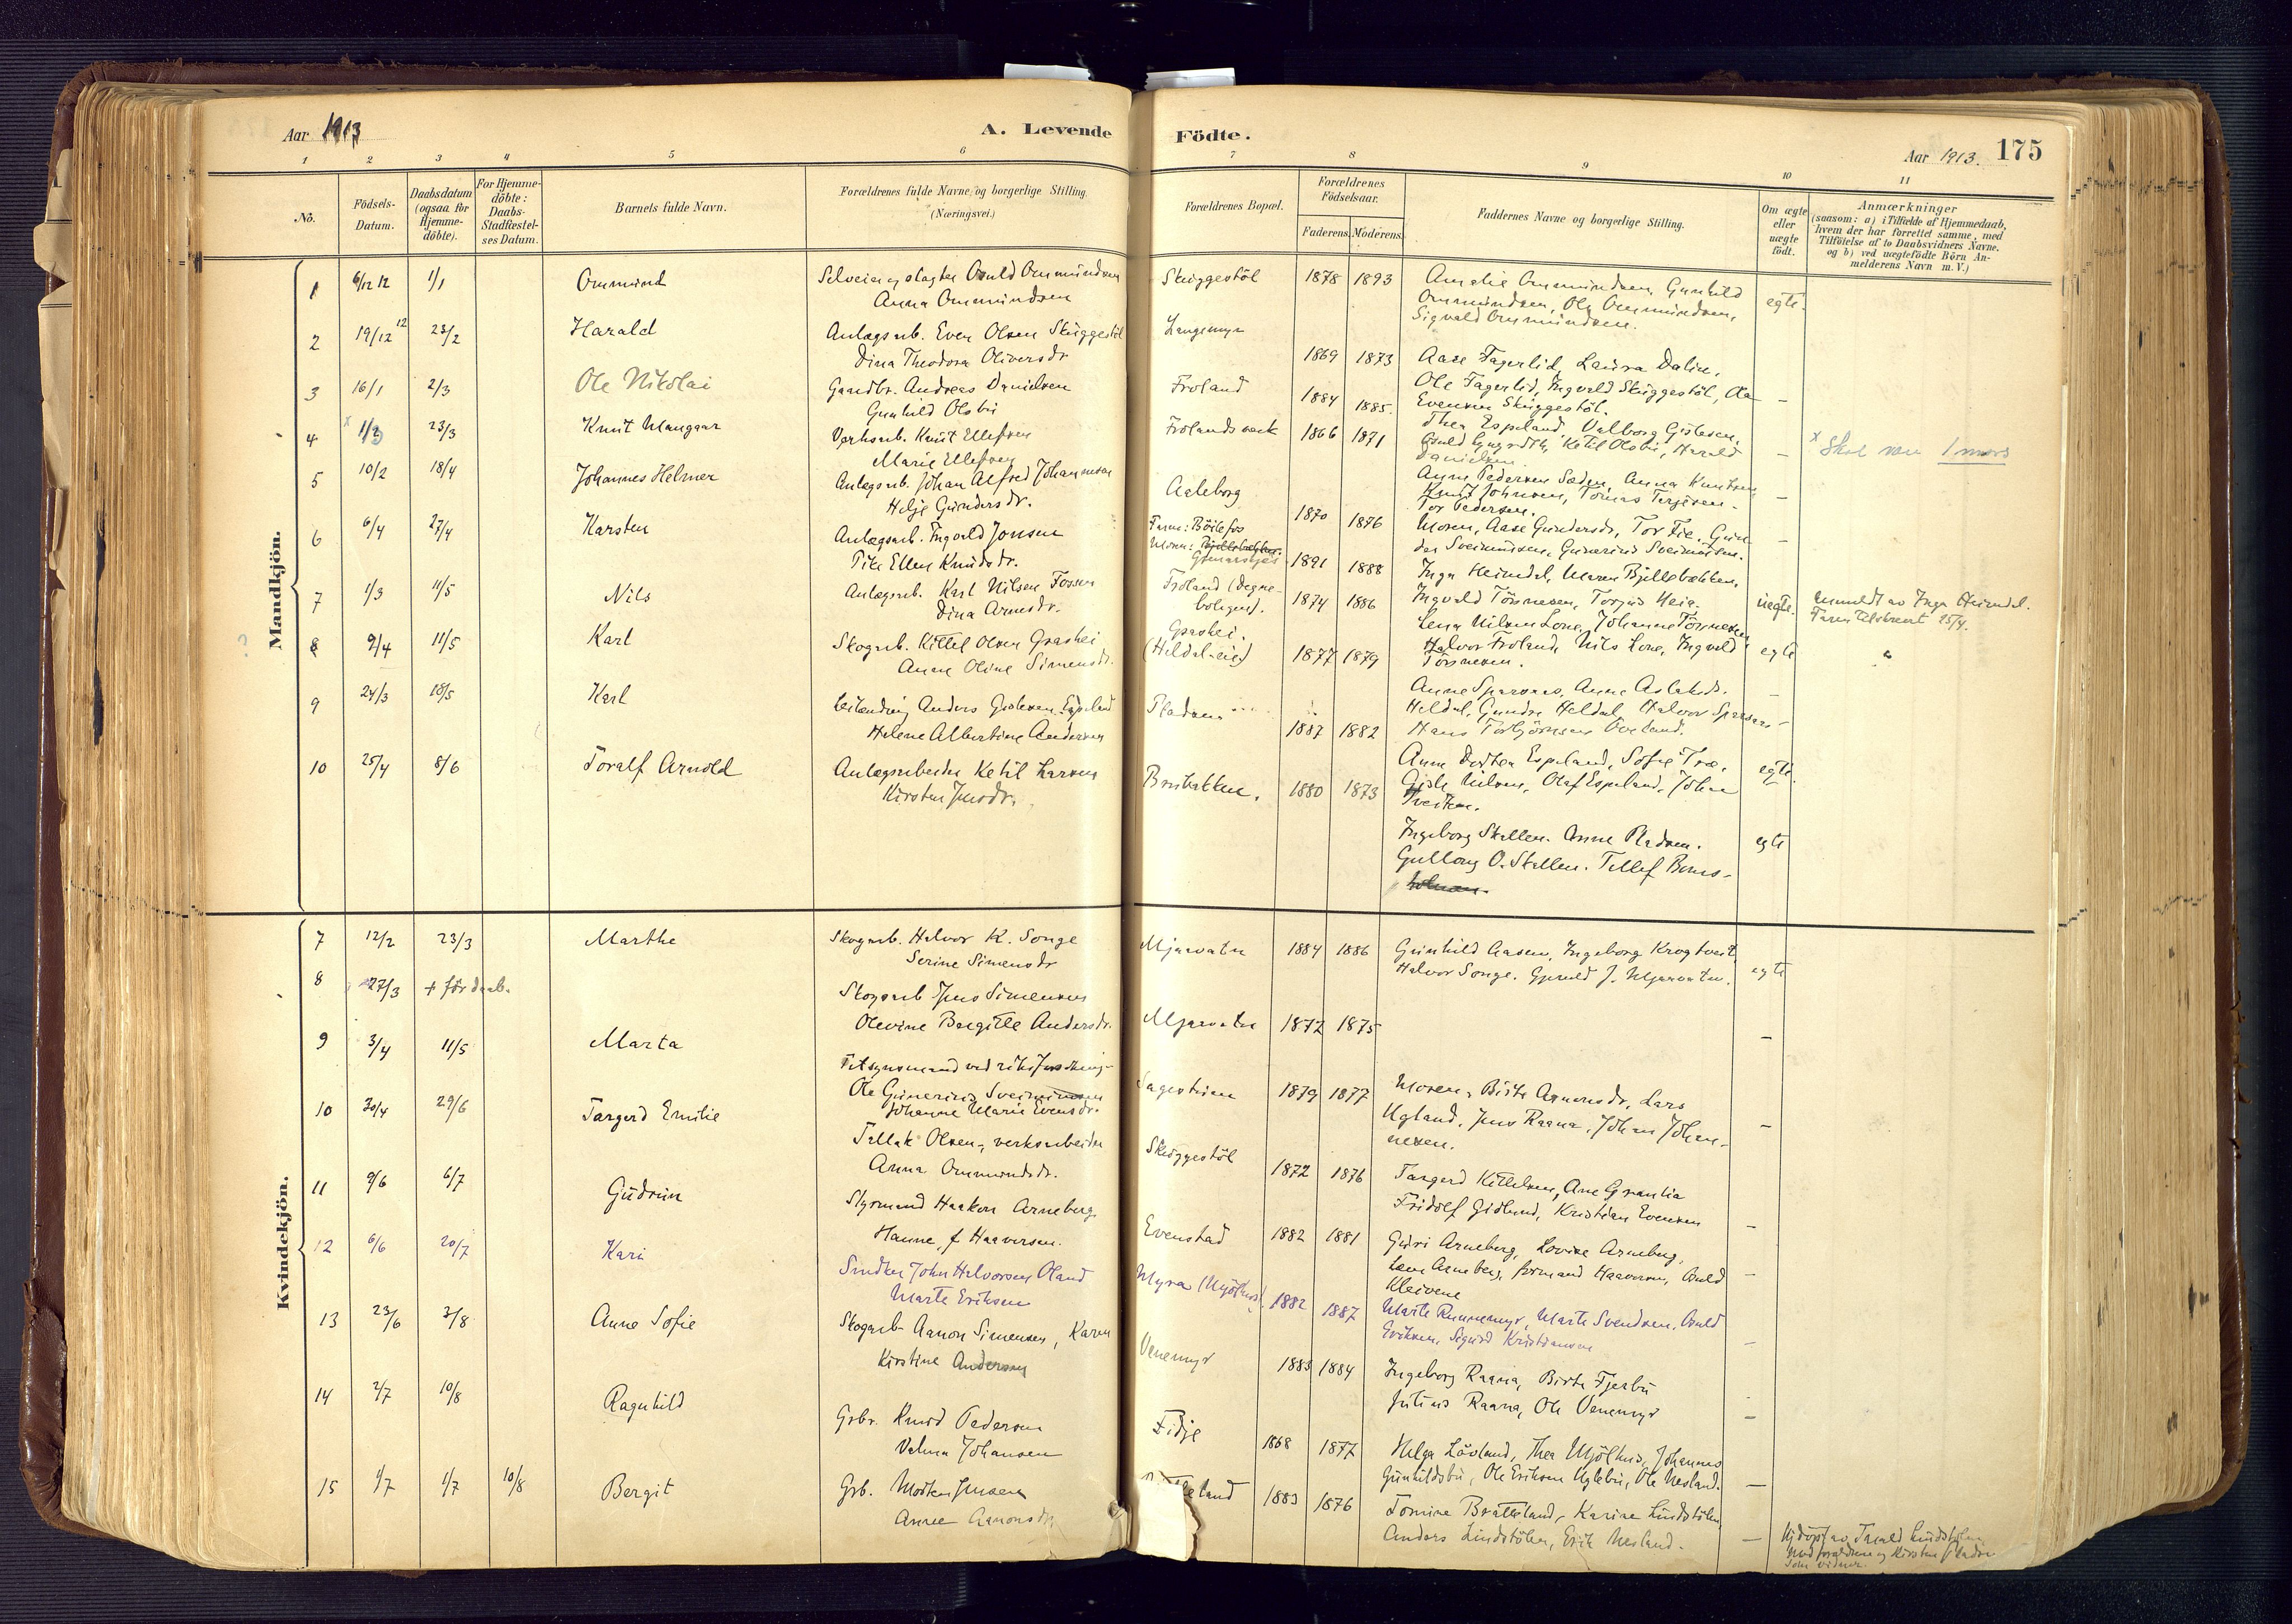 Aar 1913
A. Levende
Födte.
Aar 1913. 175
1 2 3 4 5 6 7 8 9 10 11
No.
Födsels-
Datum.
Daabsdatum
(ogsaa for
Hjemme-
döbte).
For Hjemme-
döbte:
Daabs-
Stadfæstel-
ses Datum.
Barnets fulde Navn.
Forældrenes fulde Navne og borgerlige Stilling.
(Næringsvei.)
Forældrenes Bopæl.
Forældrenes
Födselsaar.
Faderens. Moderens.
Faddernes Navne og borgerlige Stilling.
Om ægte
eller
uægte
födt.
Anmærkninger
(saasom: a) i Tilfælde af Hjemmedaab,
hvem der har forrettet samme, med
Tilföielse af to Daabsvidners Navne.
og b) ved uægtefödte Börn An-
melderens Navn m. V.)
Mandkjön.
1 6/12 12 1/1 Ommund
Anna Ommundsen
Skuggestöl 1878 1893
Amalie Ommundsen, Gunhild
Ommundsen, Ole Ommundsen,
Sigvald Ommundsen.
egte.
2 19/12 12 23/2 Harald
Anlægsarb. Even Olsen Skuggestöl
Dina Theodora Oliversdr
Langemyr 1869 1873
Aase Fagerlid, Laura Dalin,
Ole Fagerlid, Ingvald Skuggestöl, Aa
Evensen Skuggestöl.
3 16/1 2/3 Ole Nikolai
Gaardbr. Andreas Danielsen
Gunhild Olsbu
Froland 1884 1885.
Thea Espeland, Valborg Gislesen,
Ketil Olsbu, Harald
Danielsen
4 x 1/2 23/3 Knut Mangaar
Verksarb. Knut Ellefsen
Marie Ellefsen
Frolands verk 1866 1871
Anne Pedersen Sæden, Anna Knutsen
Knut Johnsen, Tomas Terjesen
Tor Pedersen.
x Skal være 1 mars
5 10/2 18/4 Johannes Helmer
Anlegsarb. Johan Alfred Johannesen
Helje Gundersdr.
Aaleborg 1870 1876
Moren, Aase Gundersdr, Tor Fie, Gun
der Sveinunsen, Gunerius Sveinunsen.
6 6/4 27/4 Karsten
Anlægsarb. Ingvald Jonsen
Pike Ellen Knudsdr.
Faren: Böilefos
Moren: Bjellebekken.
1891 1888
Inga Heimdal, Maren Bjellebekken,
Ingvald Tönnesen, Torjus Heia.
uegte.
Anmeldt av Inga Heimdal.
Faren tilskrevet 25/4.
7 1/3 11/5 Nils
Anlægsarb. Karl Nilsen Fossen
Dina Arnesdr.
Froland (Degne-
boligen). 1874 1886
Lena Nilsen Lone, Johanne Tönnesen
Halvor Froland, Nils Lone, Ingvald
Tönnesen.
egte
8 9/4 11/5 Karl
Skogarb. Kittel Olsen Grashei
Anne Oline Simensdr.
Grashei.
(Heldal-eie) 1877 1879
Anne Sparsaas, Anne Aslaksdr.
Heldal, Gunder Heldal, Halvor Sparsaas
9 24/3 18/5 Karl
Leilending Anders Gislesen Espeland
Helene Albertine Andersen
Pladsen 1887 1882
Anne Dorthea Espeland, Sofie Træ,
Gisle Nilsen, Olaf Espeland, Johan
Tveiten.
egte.
10 25/4 8/6 Toralf Arnold
Anlægsarbeider Ketil Larsen
Kirsten Jensdr.
Brubakken. 1880 1873
Ingeborg Skallen. Anne Pladsen.
Gullaug O. Skallen. Tellef Bruns-
egte
Kvindekjön.
7 12/2 23/3 Marthe
Skogarb. Halvor K. Songe
Serine Simensdr
Mjaavatn 1884 1886
Gunhild Aasen, Ingeborg Krogtveit
Halvor Songe. Gjeruld J. Mjaavatn.
egte
8 27/3 + för daab.
Skogarb Jens Simensen
Olevine Birgitte Andersdr.
Mjaavatn 1872 1875
9 3/4 11/5 Marta
Ole Gunerius Sveinunsen
Johanne Marie Evensdr.
Sagestrøen 1879 1877
Moren, Birte Aanonsdr, Lars
Ugland, Jens Raana, Johan Johan-
nesen.
10 30/4 29/6 Targerd Emilie
Tellak Olsen, verksarbeider
Anna Ommundsdr.
Skuggestöl 1872 1876
Targerd Kittelsen, Ane Granlia
Fridolf Gidlund, Kristian Evensen
11 9/6 6/7 Gudrun
Styrmand Haakon Arneberg
Hanne, f. Haaversen.
Evenstad 1882 1881
Guri Arneberg, Lovise Arneberg,
Lene Arneberg, formand Haaversen, Aanld
Kleivene
12 6/6 20/7 Kari
Smeden John Halvorsen Oland
Marte Eriksen
Myra (Mjölhus). 1882 1887
Marte Runnemyr, Marte Svendsen,
Eriksen, Sigurd Kristiansen
13 23/6 3/8 Anne Sofie
Skogarb- Aanon Simensen, Karen
Kirstine Andersen
Venemyr 1883 1884
Ingeborg Raana, Birte Fjerbu
Julius Raana, Ole Venemyr
14 2/7 10/8 Ragnhild
Grbr. Knud Pedersen
Valma Johansen
Fidje 1868 1877
Helga Lövland, Thea Mjölhus, Johannes
Gunhildsbu, Ole Eriksen Uglebu, Ole Nesland.
15 1/7 1/7 10/8 Bergit
Grb. Morten Jensen
Anne Aanonsdr
eland 1883 1876
Tomine Bratteland, Karine Lindstölen
Anders Lindstölen, Erik Nesland.
Hjdöpt av Tarald Lindstølen
med foreldrene og Kirsten
som vidner.